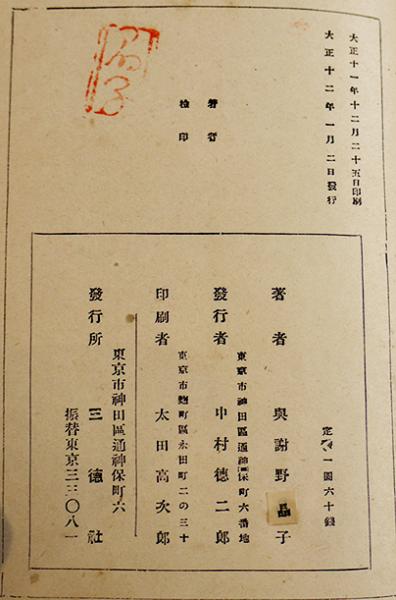 大正十一年十二月二十五日印刷
大正十二年一月二日發行
著者
檢印
定價一圓六十錢
著者 與謝野晶子
東京市神田區通神保町六番地
發行者 中村德二郎
東京市麹町區永田町二の三十
印刷者 太田高次郎
東京市神田區通神保町六
發行所 三德社
振替東京三三〇八一